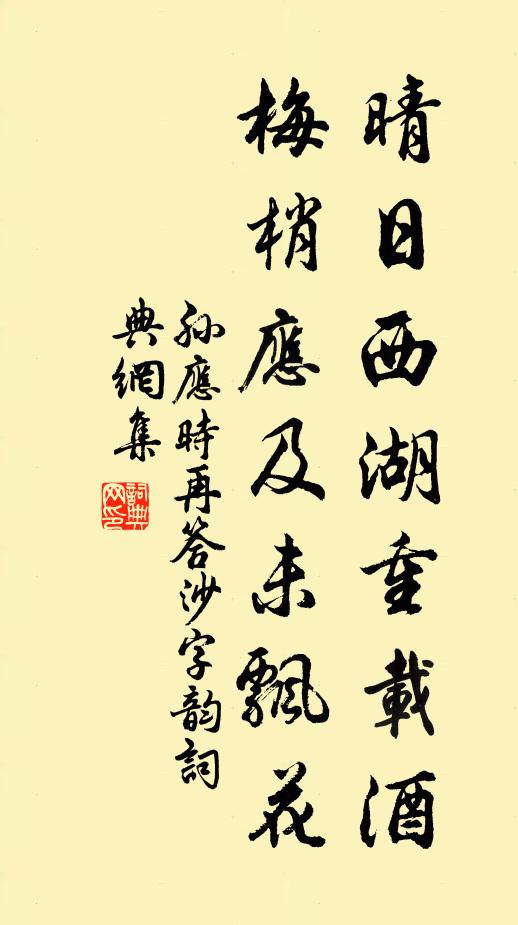 晴日西湖重載酒
梅梢應及未飄花
孙應時再答沙字韵詞
典網集
詞典
网印